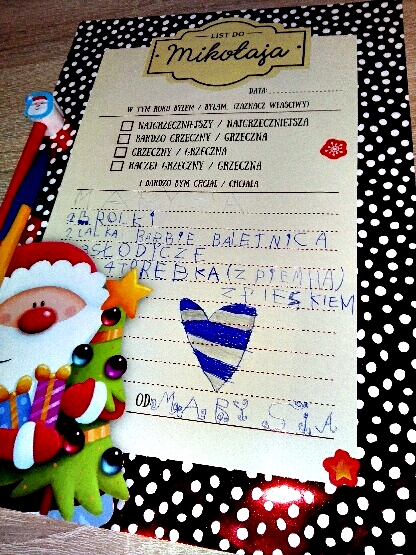 LIST DO
Mikołaja
DATA:
W TYM ROKU BYŁEM / BYŁAM: (ZAZNACZ WŁAŚCIWY)
NAJGRZECZNIEJSZY / NAJGRZECZNIEJSZA
BARDZO GRZECZNY / GRZECZNA
GRZECZNY / GRZECZNA
RACZEJ GRZECZNY / GRZECZNA
I BARDZO BYM CHCIAŁ / CHCIAŁA
1 ROLKI
2 LALKA BARBIE BALETNICA
SŁODICZE
4 TOREBKA (Z PIEMHA)
Z PIESKIEM
OD: MARYSIA